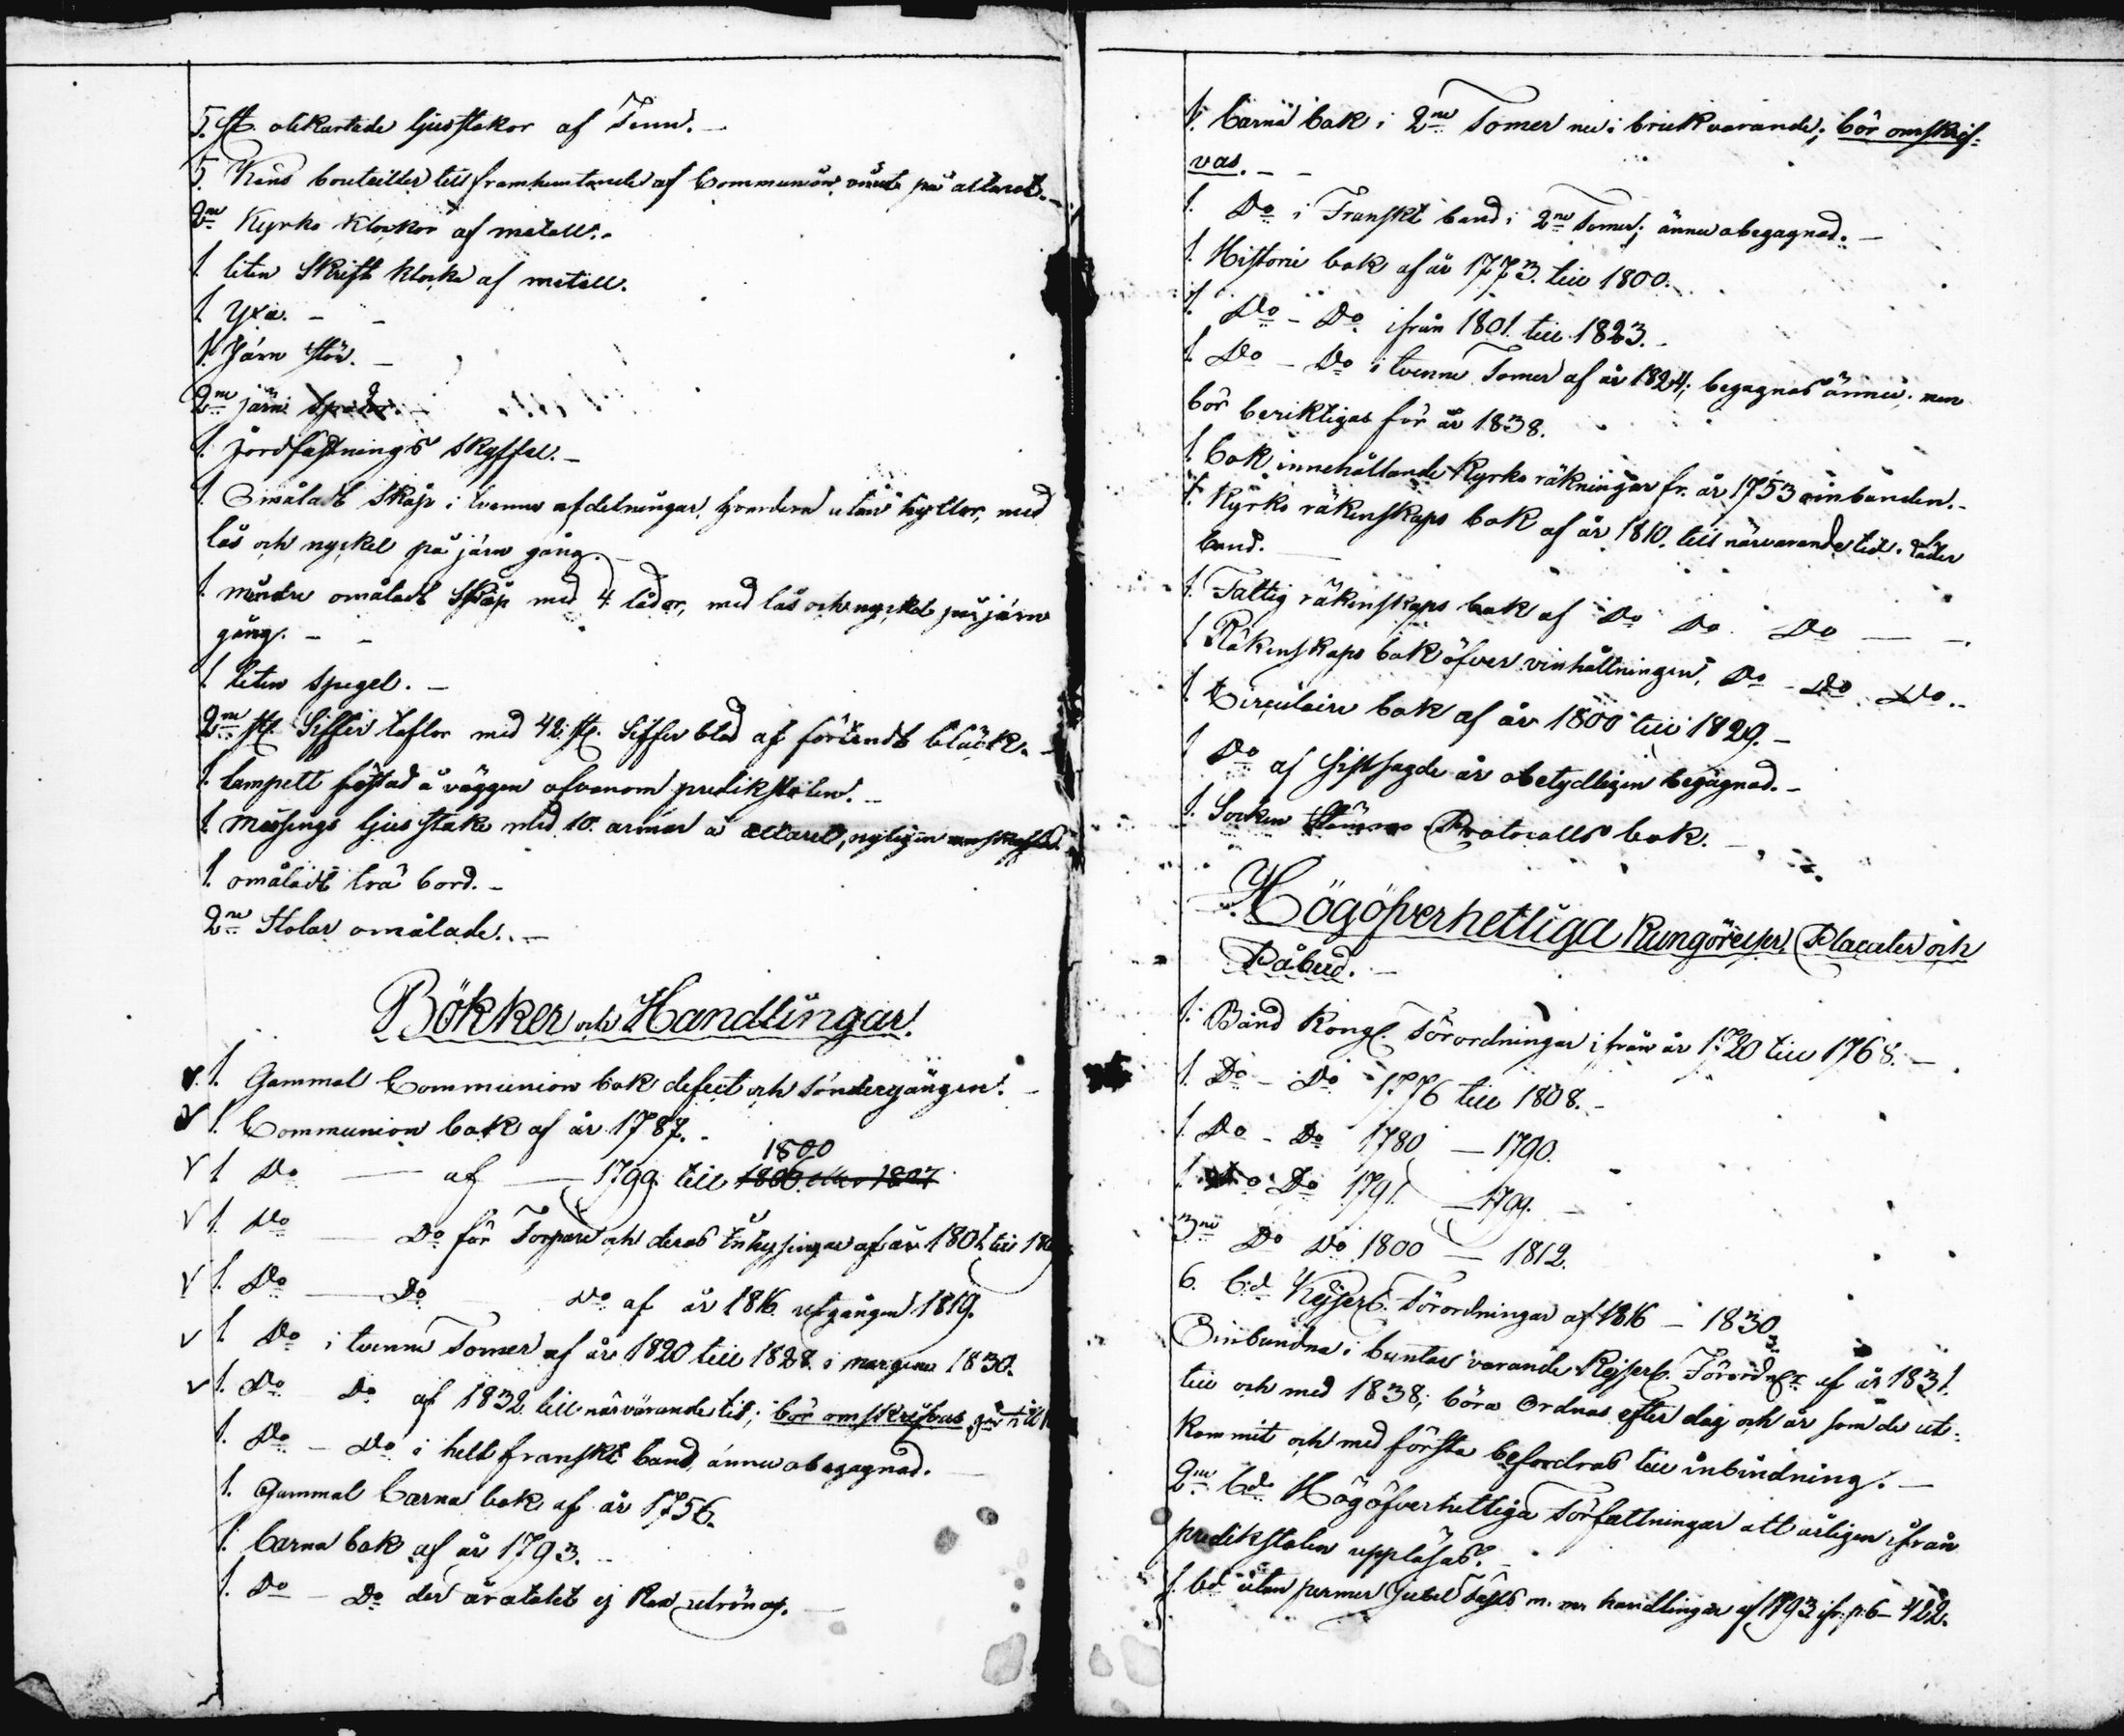 5. st. olikartade ljusstakar af Tenn. -
5. Kros bouteiller till framhemtande af Communion vinet på altaret. -
2ne Kyrko Klockor af metall. -
1. liten Skrift Klocka af metall.
1. Yxa. - -
1. Järn stör. -
2ne järn spador. -
1. Jordfästnings skyffel. -
1. Omåladt Skåp i tvenne afdelningar, hvardera utan hyllor, med
lås och nyckel på järn gång. -
1. mindre omåladt Skåp med 4 lådor, med lås och nyckel på järn
gång. - -
1. liten spegel. -
2ne st. Siffer taflor med 42 st. Siffer blad af förtendt bläck. -
1. lampett fästad å väggen ofvanom predikstolen. -
1. messings ljus stake med 10. armar å altaret, nyligen anskaffad.
1. omåladt trä bord. -
2ne Stolar omålade. -
Böcker och Handlingar.
V. 1. Gammal Communion bok defect och söndergången. -
V 1. Communion bok af år 1787. -
1800
V 1 Do — af — 1799 till 1806 eller 1807
V 1. Do — Do för Torpare och deras Inhysingar af år 1801 till 18
V 1. Do — Do Do af år 1816 utgången 1819.
V 1. Do i tvenne Tomer af år 1820 till 1828 i margine 1830.
V 1. Do Do af 1832 till närvarande tid; bör omskrifvas
1. Do - Do i helt franskt band, ännu obegagnad. —
1. Gammal barna bok af år 1756.
1. barna bok af år 1793. -
1. Do - Do der åratalet ej kan utrönas. —
1. barna bok i 2ne Tomer nu i bruk varande; bör omskrif-
vas. - -
1. Do i Franskt band i 2ne Tomer; ännu obegagnad. -
1. Historie bok af år 1773. till 1800.
1. Do - Do ifrån 1801. till 1823. -
1. Do - Do i tvenne Tomer af år 1824; begagnas ännu, men
bör beriktigas för år 1838.
1. bok innehållande Kyrko räkningar fr. år 1753 oinbunden. -
1. Kyrko räkenskaps bok af år 1810. till närvarande tid. läder
band. —
1. Fattig räkenskaps bok af Do Do Do — -
1. Räkenskaps bok öfver vinhållningen, Do - Do Do -
1. Circulaire bok af år 1800 till 1829. -
1 Do af sistsagde år obetydligen begagnad. -
1. Socken Stämmo Protocolls bok. -
Högöfverhetliga Kungörelser, Placater och
Påbud. -
1. Band Kongl. Förordningar ifrån år 1720 till 1768. -
1. Do - Do 1776 till 1808. -
1. Do - Do 1780 — 1790.
1. Do Do 1791. — 1799. -
3ne Do Do 1800 — 1812.
6. b:d Kejserl. Förordningar af 1816 - 1830
Oinbundna i buntar varande Kejserl. Förordngr af år 1831.
till och med 1838; böra Ordnas efter dag och år som de ut-
kommit och med första befordras till inbindning. -
2ne bd. Högöfverhetliga Författningar att årligen ifrån
predikstolen uppläsas. -
1. bd utan permer Jubel Fests m. m. handlingar af 1793 ifr. p. 6 - 422.